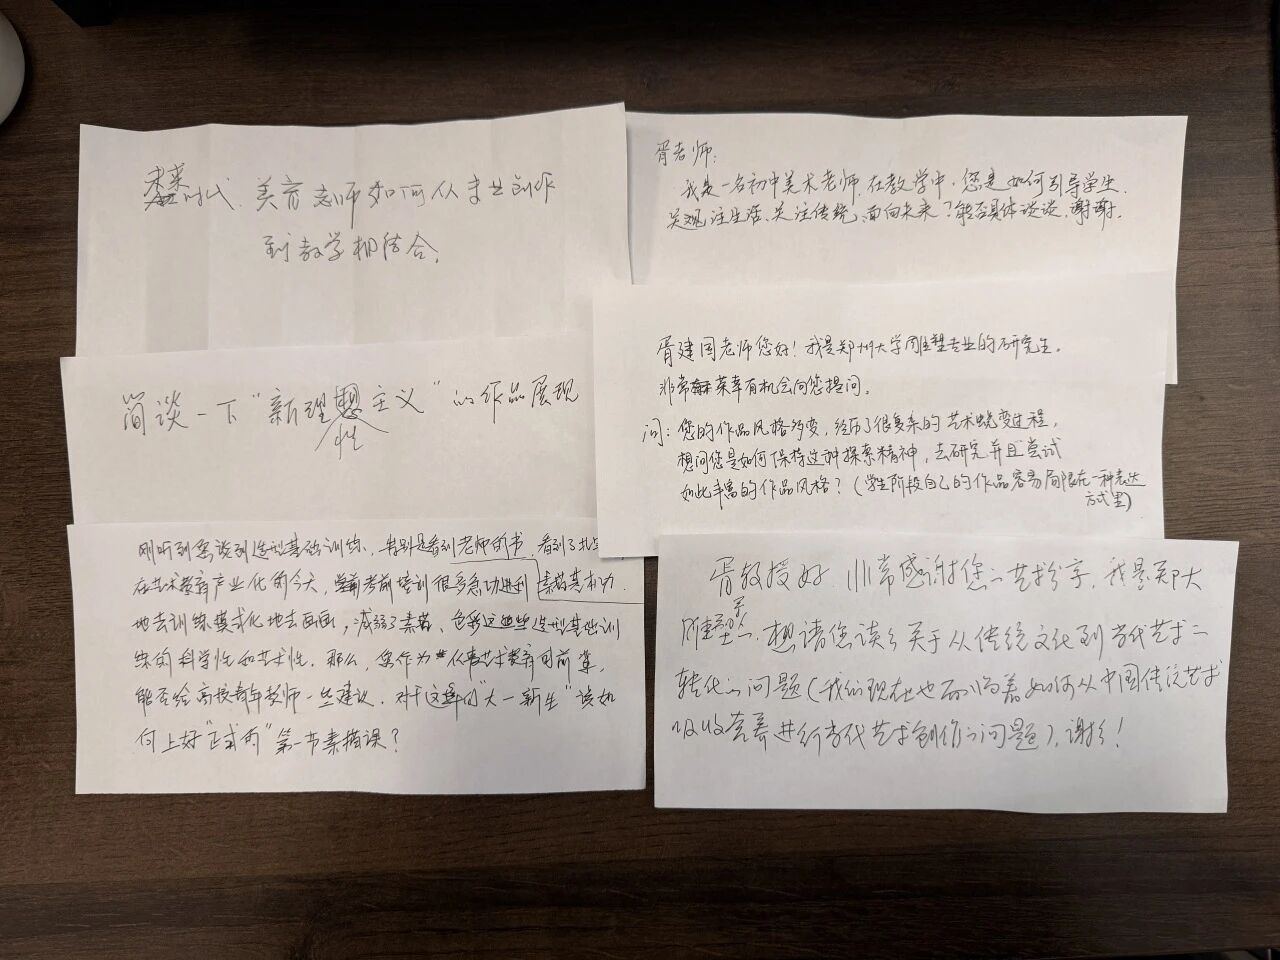 时代. 美育老师如何从专业创作
到教学相结合.
简谈一下“新理想主义”的作品展现
性
刚听到您谈到造型基础训练、特别是看到老师的书，看到了扎实
素描基本功.
在艺术教育产业化的今天，考前培训很多急功近利
地去训练模式化地去画画，减弱了素描、色彩这些造型基础训
练的科学性和艺术性. 那么，您作为从事艺术教育的前辈，
能否给高校青年教师一些建议. 对于这样的“大一新生”该如
何上好“正式的”第一节素描课？
胥老师：
我是一名初中美术老师. 在教学中，您是如何引导学生.
关注生活、关注传统、面向未来？能否具体谈谈. 谢谢.
胥建国老师您好！我是郑州大学雕塑专业的研究生.
非常荣幸有机会向您提问.
问：您的作品风格多变，经历了很多系的艺术蜕变过程，
想问您是如何保持这种探索精神，去研究并且尝试
如此丰富的作品风格？（学生阶段自己的作品容易局限在一种表达
方式里）
胥教授好. 非常感谢您的艺术分享，我是郑大
雕塑系的. 想请您谈谈关于从传统文化到当代艺术的
转化的问题（我们现在也面临着如何从中国传统艺术
吸收营养进行当代艺术创作的问题）. 谢谢！